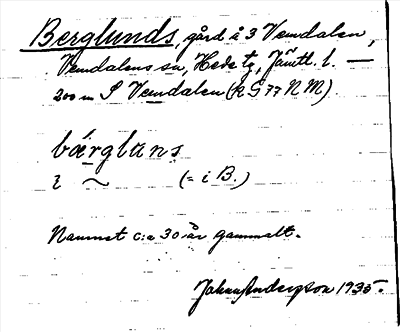 Berglunds, gård å 3 Vemdalen,
Vemdalens sn, Hede tg, Jämtl. l. —
200 m S Vemdalen (RG 77 NM).
bǽrglans
i ~ (= i B.)
Namnet c:a 30 år gammalt.
Johan Anderson 1935.